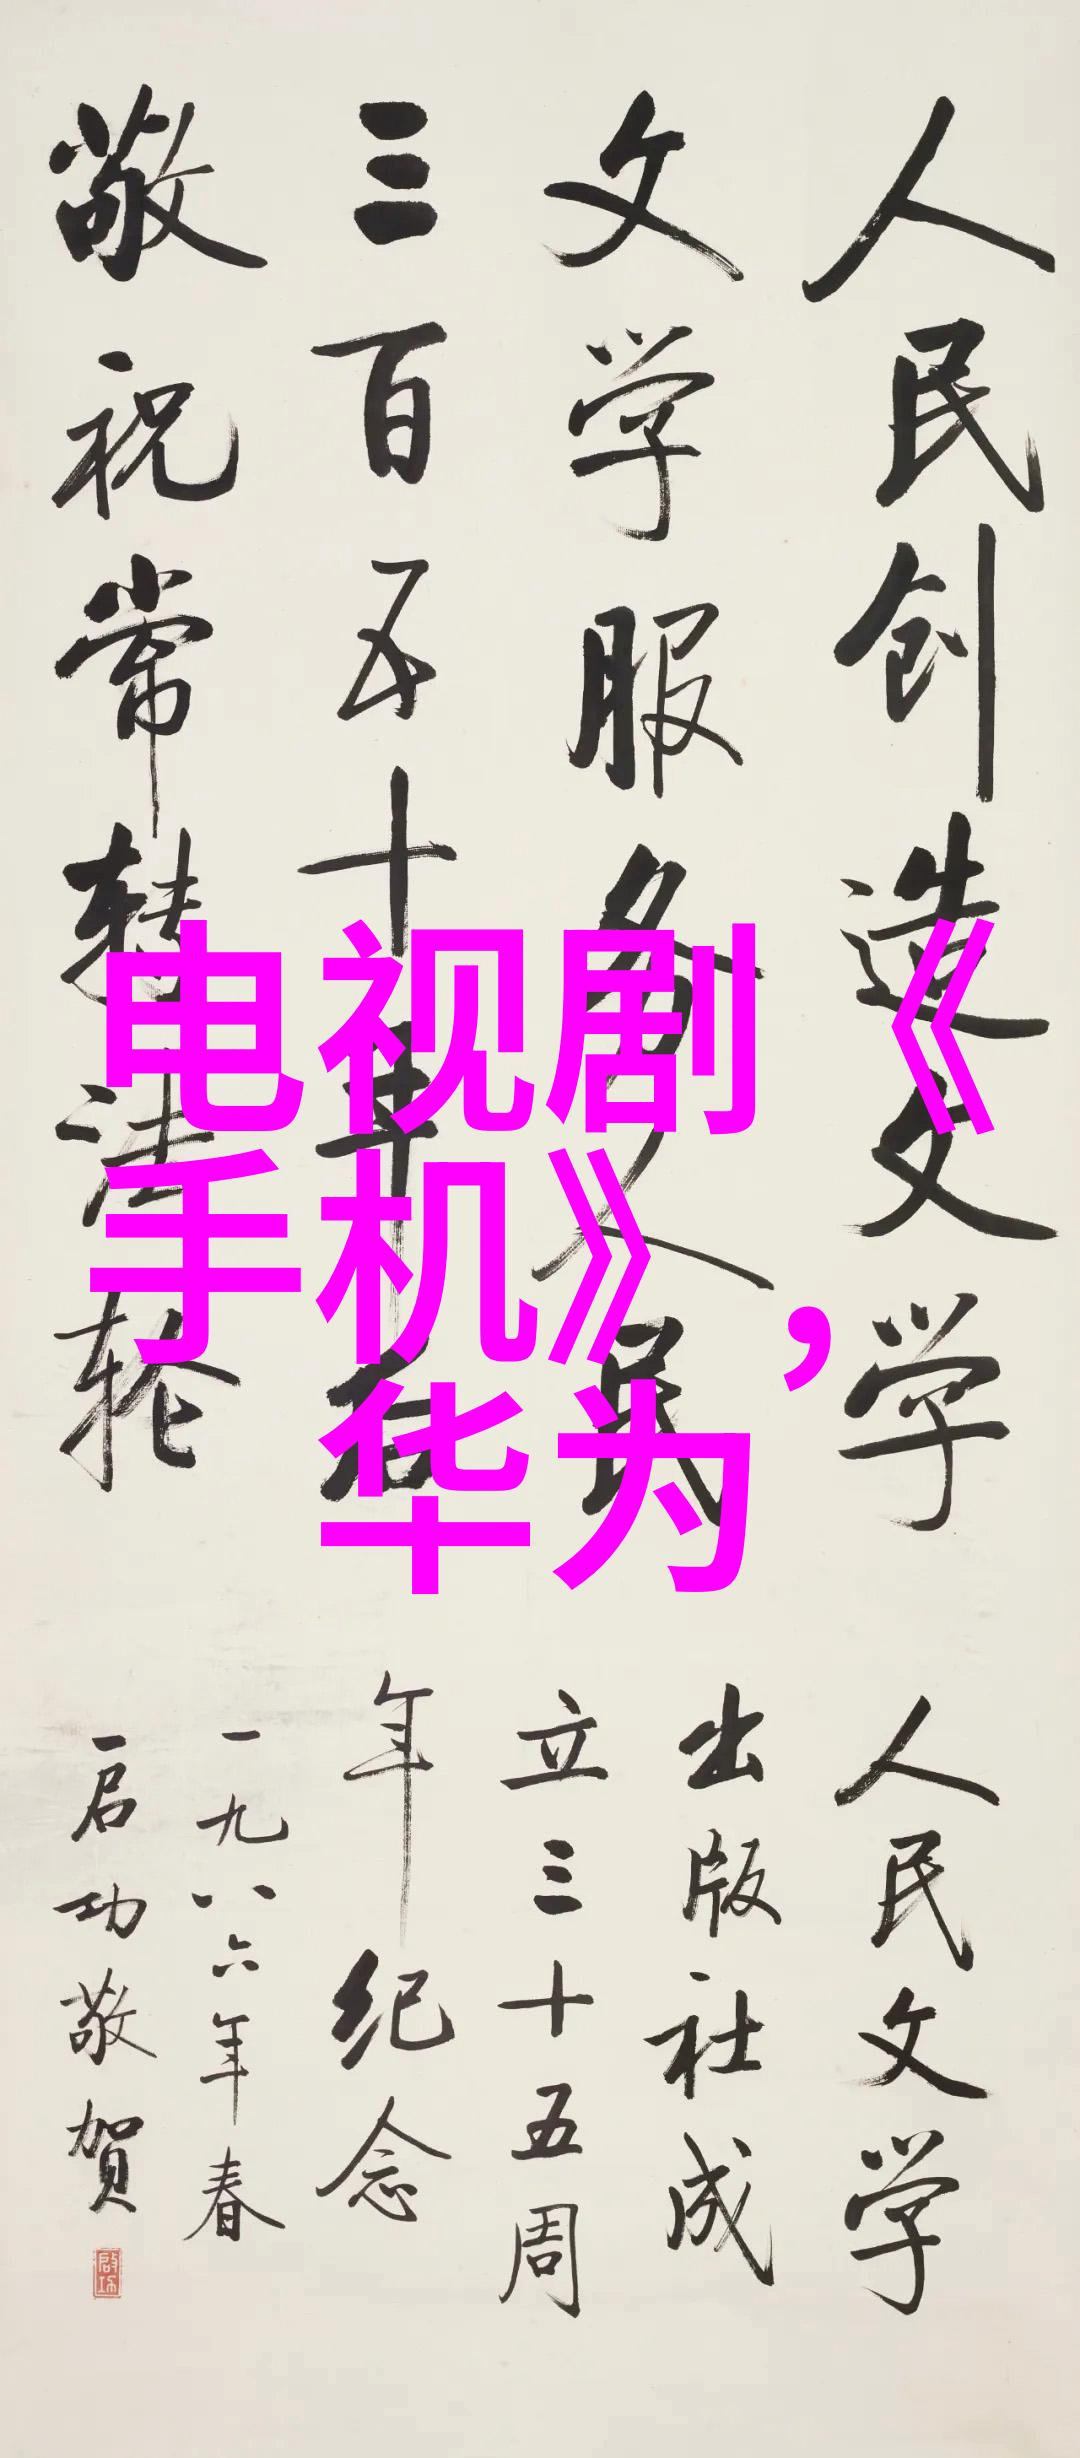 人民创造文学
文学服务人民
三百五十年
敬祝常转法轮
电视剧《
手机》，
华为
人民文学
出版社成
立三十五周
年纪念
一九八六年春
启功敬賀